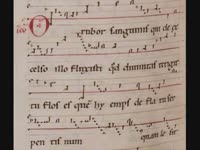 O rubor sanguinis qui de ex
celso illo fluxisti qd diuinitas tetigit
tu flos es que hyemps de fla tu ser
pen tis num